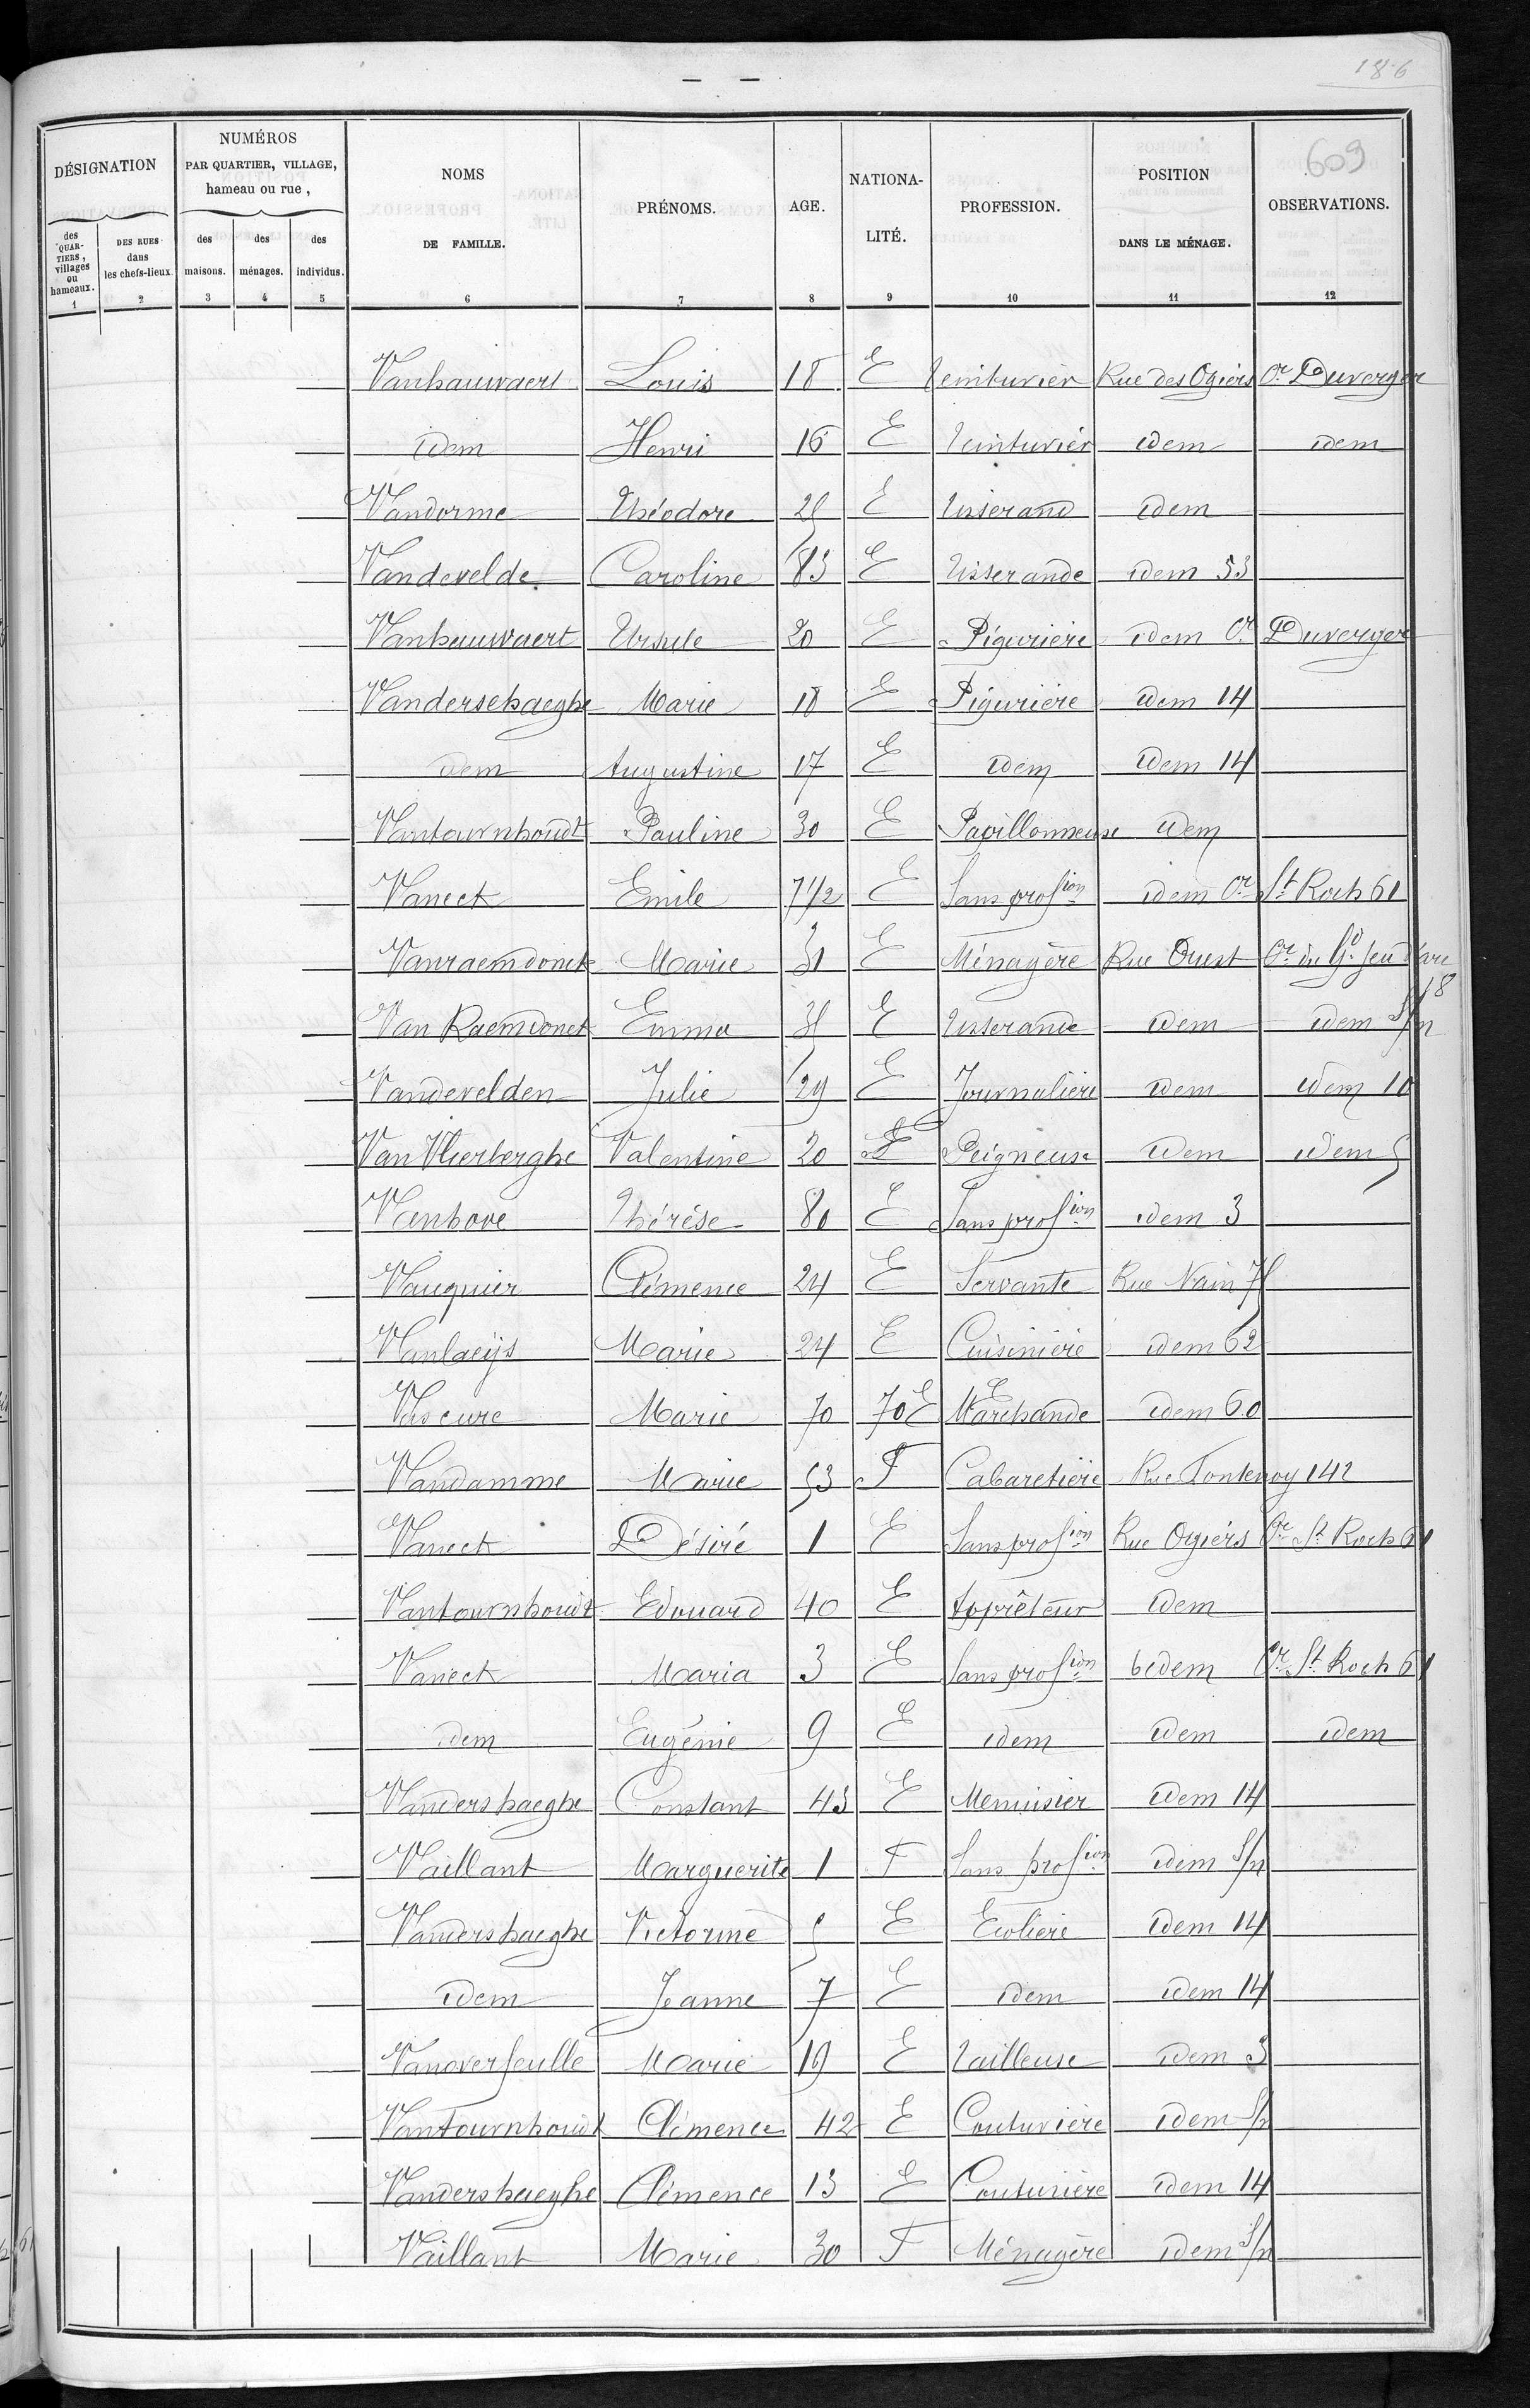 186
609
DÉSIGNATION
NUMÉROS
PAR QUARTIER, VILLAGE,
hameau ou rue,
NOMS
DE FAMILLE.
PRÉNOMS.
AGE.
NATIONA-
LITÉ.
PROFESSION.
POSITION
DANS LE MÉNAGE.
OBSERVATIONS.
des QUAR-TIERS, villages ou hameaux.
DES RUES dans les chefs-lieux.
des maisons.
des ménages.
des individus.
1 2 3 4 5 6 7 8 9 10 11 12
Vanhauwaert Louis 18 E teinturier Rue des Ogiers Cr Duverger
idem Henri 16 E teinturier idem idem
Vandorme Théodore 25 E tisserand idem
Vandevelde Caroline 83 E tisserande idem 53
Vanhauwaert Ursule 20 E Piqurière idem Cr Duverger
Vanderschaeghe Marie 18 E Piqurière idem 14
idem Augustine 17 E idem idem 14
Vantournhoudt Pauline 30 E Papillonneuse idem
Vaneck Emile 7 1/2 E Sans profion idem Cr St Roch 61
Vanraemdonck Marie 31 E Ménagère Rue Ouest
Van Raemdonck Emma 35 E tisserande idem idem S/n
18
Vandevelden Julie 29 E Journalière idem idem 10
Van Vlierberghe Valentine 20 E Peigneuse idem idem 5
Vanhove thérèse 80 E Sans profion idem 3
Vauquier Clémence 24 E Servante Rue Nain 75
Vanlaeÿs Marie 24 E Cuisinière idem 62
Vascure Marie 70 70 E Marchande idem 60
Vandamme Marie 53 F Cabaretière Rue Fontenoy 142
Vaneck Désiré 1 E Sans profion Rue Ogiers Cr St Roch 61
Vantournhoudt Edouard 40 E Apprêteur idem
Vaneck Maria 3 E Sans profion idem Cr St Roch 61
idem Eugénie 9 E idem idem idem
Vandershaeghe Constant 43 E Menuisier idem 14
Vaillant Marguerite 1 F Sans profion idem S/n
Vandershaeghe Victorine 5 E Ecolière idem 14
idem Jeanne 7 E idem idem 14
Vanoverfeulle Marie 19 E tailleuse idem 3
Vantournhoudt Clémence 42 E Couturière idem S/n
Vandershaeghe Clémence 13 E Couturière idem 14
Vaillant Marie 30 F Ménagère idem S/n